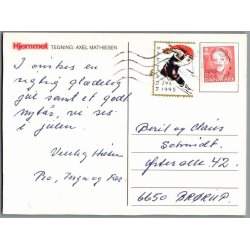 Hjemmet TEGNING: AXEL MATHIESEN
I ønskes en
rigtig glædelig
jul samt et godt
nytår, vi ses
i julen.
Venlig Hilsen
Per, Inga og
JUL
1995
DANMARK
Beril og Claus
Schmidt
6650 BRØRUP.